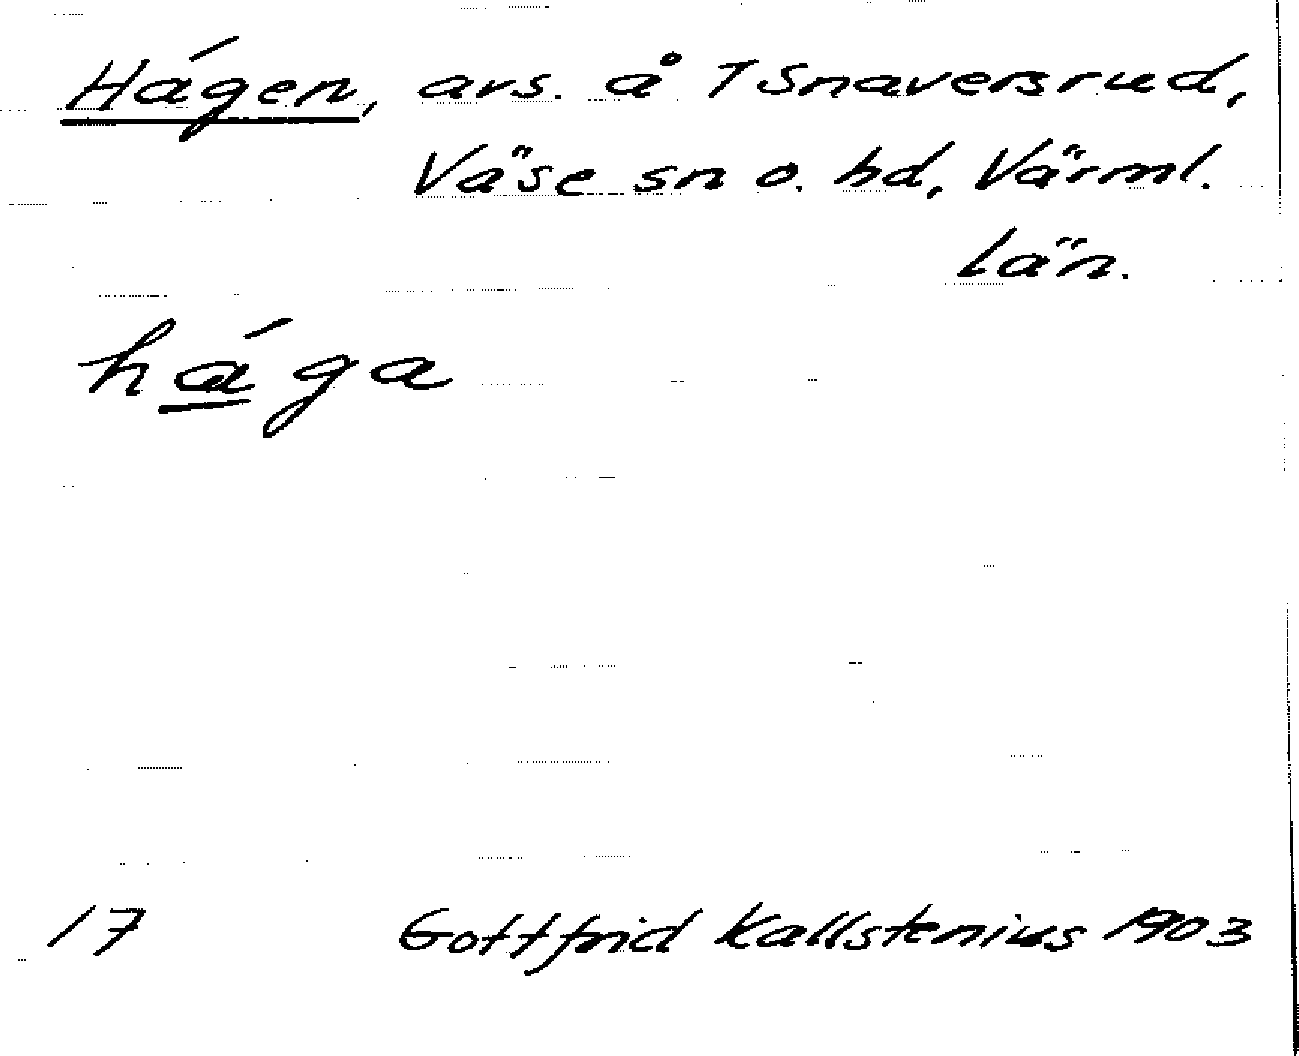 Hágen, avs. å 7 Snaversrud,
Väse sn o. hd, Värml.
län.
hága
17 Gottfrid Kallstenius 1903